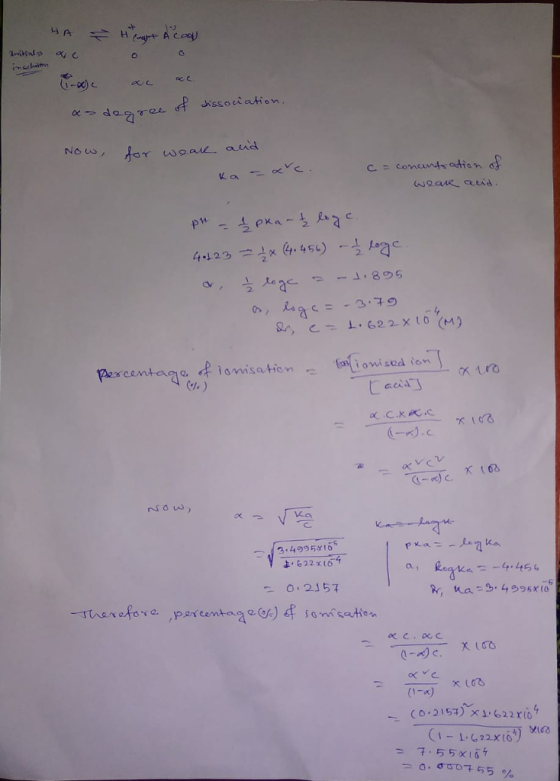 HA ⇌ H⁺(aq) + A⁻(aq)
Initials α,c 0 0
(1-α)c αc αc
α → degree of dissociation.
Now, for weak acid
Ka = α²c. c = concentration of weak acid.
pH = 1/2 pKa - 1/2 log c.
4.123 = 1/2 × (4.456) - 1/2 log c.
or, 1/2 log c = -1.895
or, log c = -3.79
or, c = 1.622 × 10⁻⁴ (M)
Percentage (%) of ionisation = [ionised ion] / [acid] × 100
= α.c × α.c / (1-α).c × 100
= α²c² / (1-α)c × 100
Now, α = √(Ka/c)
= √(3.4995×10⁻⁵ / 1.622×10⁻⁴)
pKa = -log Ka
or, log Ka = -4.456
or, Ka = 3.4995×10⁻⁵
= 0.2157
Therefore, percentage (%) of ionisation
= αc.αc / (1-α)c. × 100
= α²c / (1-α) × 100
= (0.2157)² × 1.622×10⁻⁴ / (1 - 1.622×10⁻⁴) × 100
= 7.55×10⁻⁴
= 0.000755 %